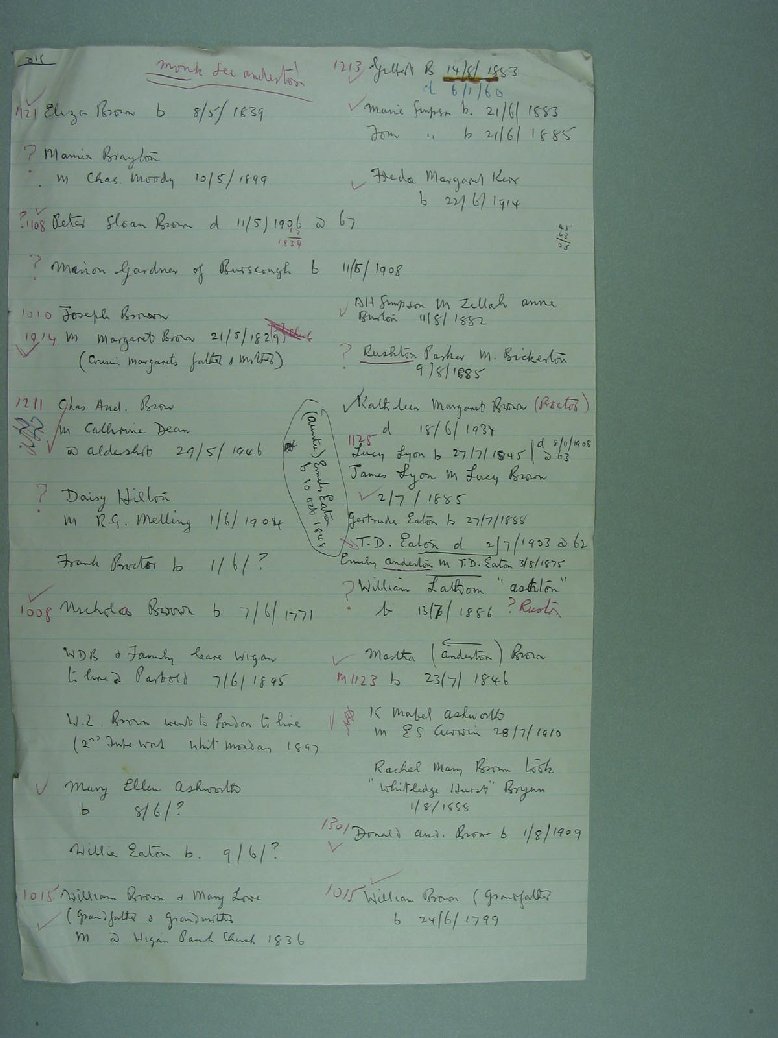 monk see anderton
1121 Eliza Brown b 8/5/1839
?
m Chas. Moody 10/5/1899
? 1108 Peter Sloan Brown d 11/5/1906 @ 67
67
1839
? Marion Gardner of Burscough b 11/5/1908
1010 Joseph Brown
1014 m Margaret Brown 21/5/1829
(Cousin Margarets father & mother)
1211 Chas And. Brown
m Catherine Dean
@ aldershot 29/5/1946
? Daisy Hilton
m R.G. Melling 1/6/1904
Frank Proctor b 1/6/?
1008 Nicholas Brown b 7/6/1771
WDB & Family leave wigan
to live @ Parbold 7/6/1895
W.L. Brown went to London to live
(2nd time Whit monday 1897
Mary Ellen ashworth
b 8/6/?
Willie Eaton b. 9/6/?
1015 William Brown & Mary Lowe
(Grandfather & Grandmother
m @ Wigan Parish Church 1836
(auntie) Emily Eaton
b 10 oct 1848
1213 Gilbert B 14/6/1883
d 6/1/60
Marie Simpson b. 21/6/1883
Tom " b 21/6/1885
Freda Margaret Kerr
b 22/6/1914
AH Simpson m Zillah anne
Burton 11/8/1882
? Rushton Parker m. Bickerton
9/8/1885
Kathleen Margaret Brown (Proctor)
d 18/6/1938
1125
Lucy Lyon b 27/7/1845 d 8/11/1908
@ 63
James Lyon m Lucy Brown
2/7/1885
Gertrude Eaton b 27/7/1888
T.D. Eaton d 2/7/1933 @ 62
Emily anderton m T.D. Eaton 3/8/1875
? William Lathom "ashton"
b 13/7/1886 ? Rustn
Martha (anderton) Brown
M1123 b 23/7/1846
K Mabel ashworth
m ES Curwin 28/7/1910
Rachel Mary Brown took
"Whitledge Hurst" Bryan
1/8/1888
1301 Donald and. Brown b 1/8/1909
1015 William Brown (Grandfather
b 24/6/1799